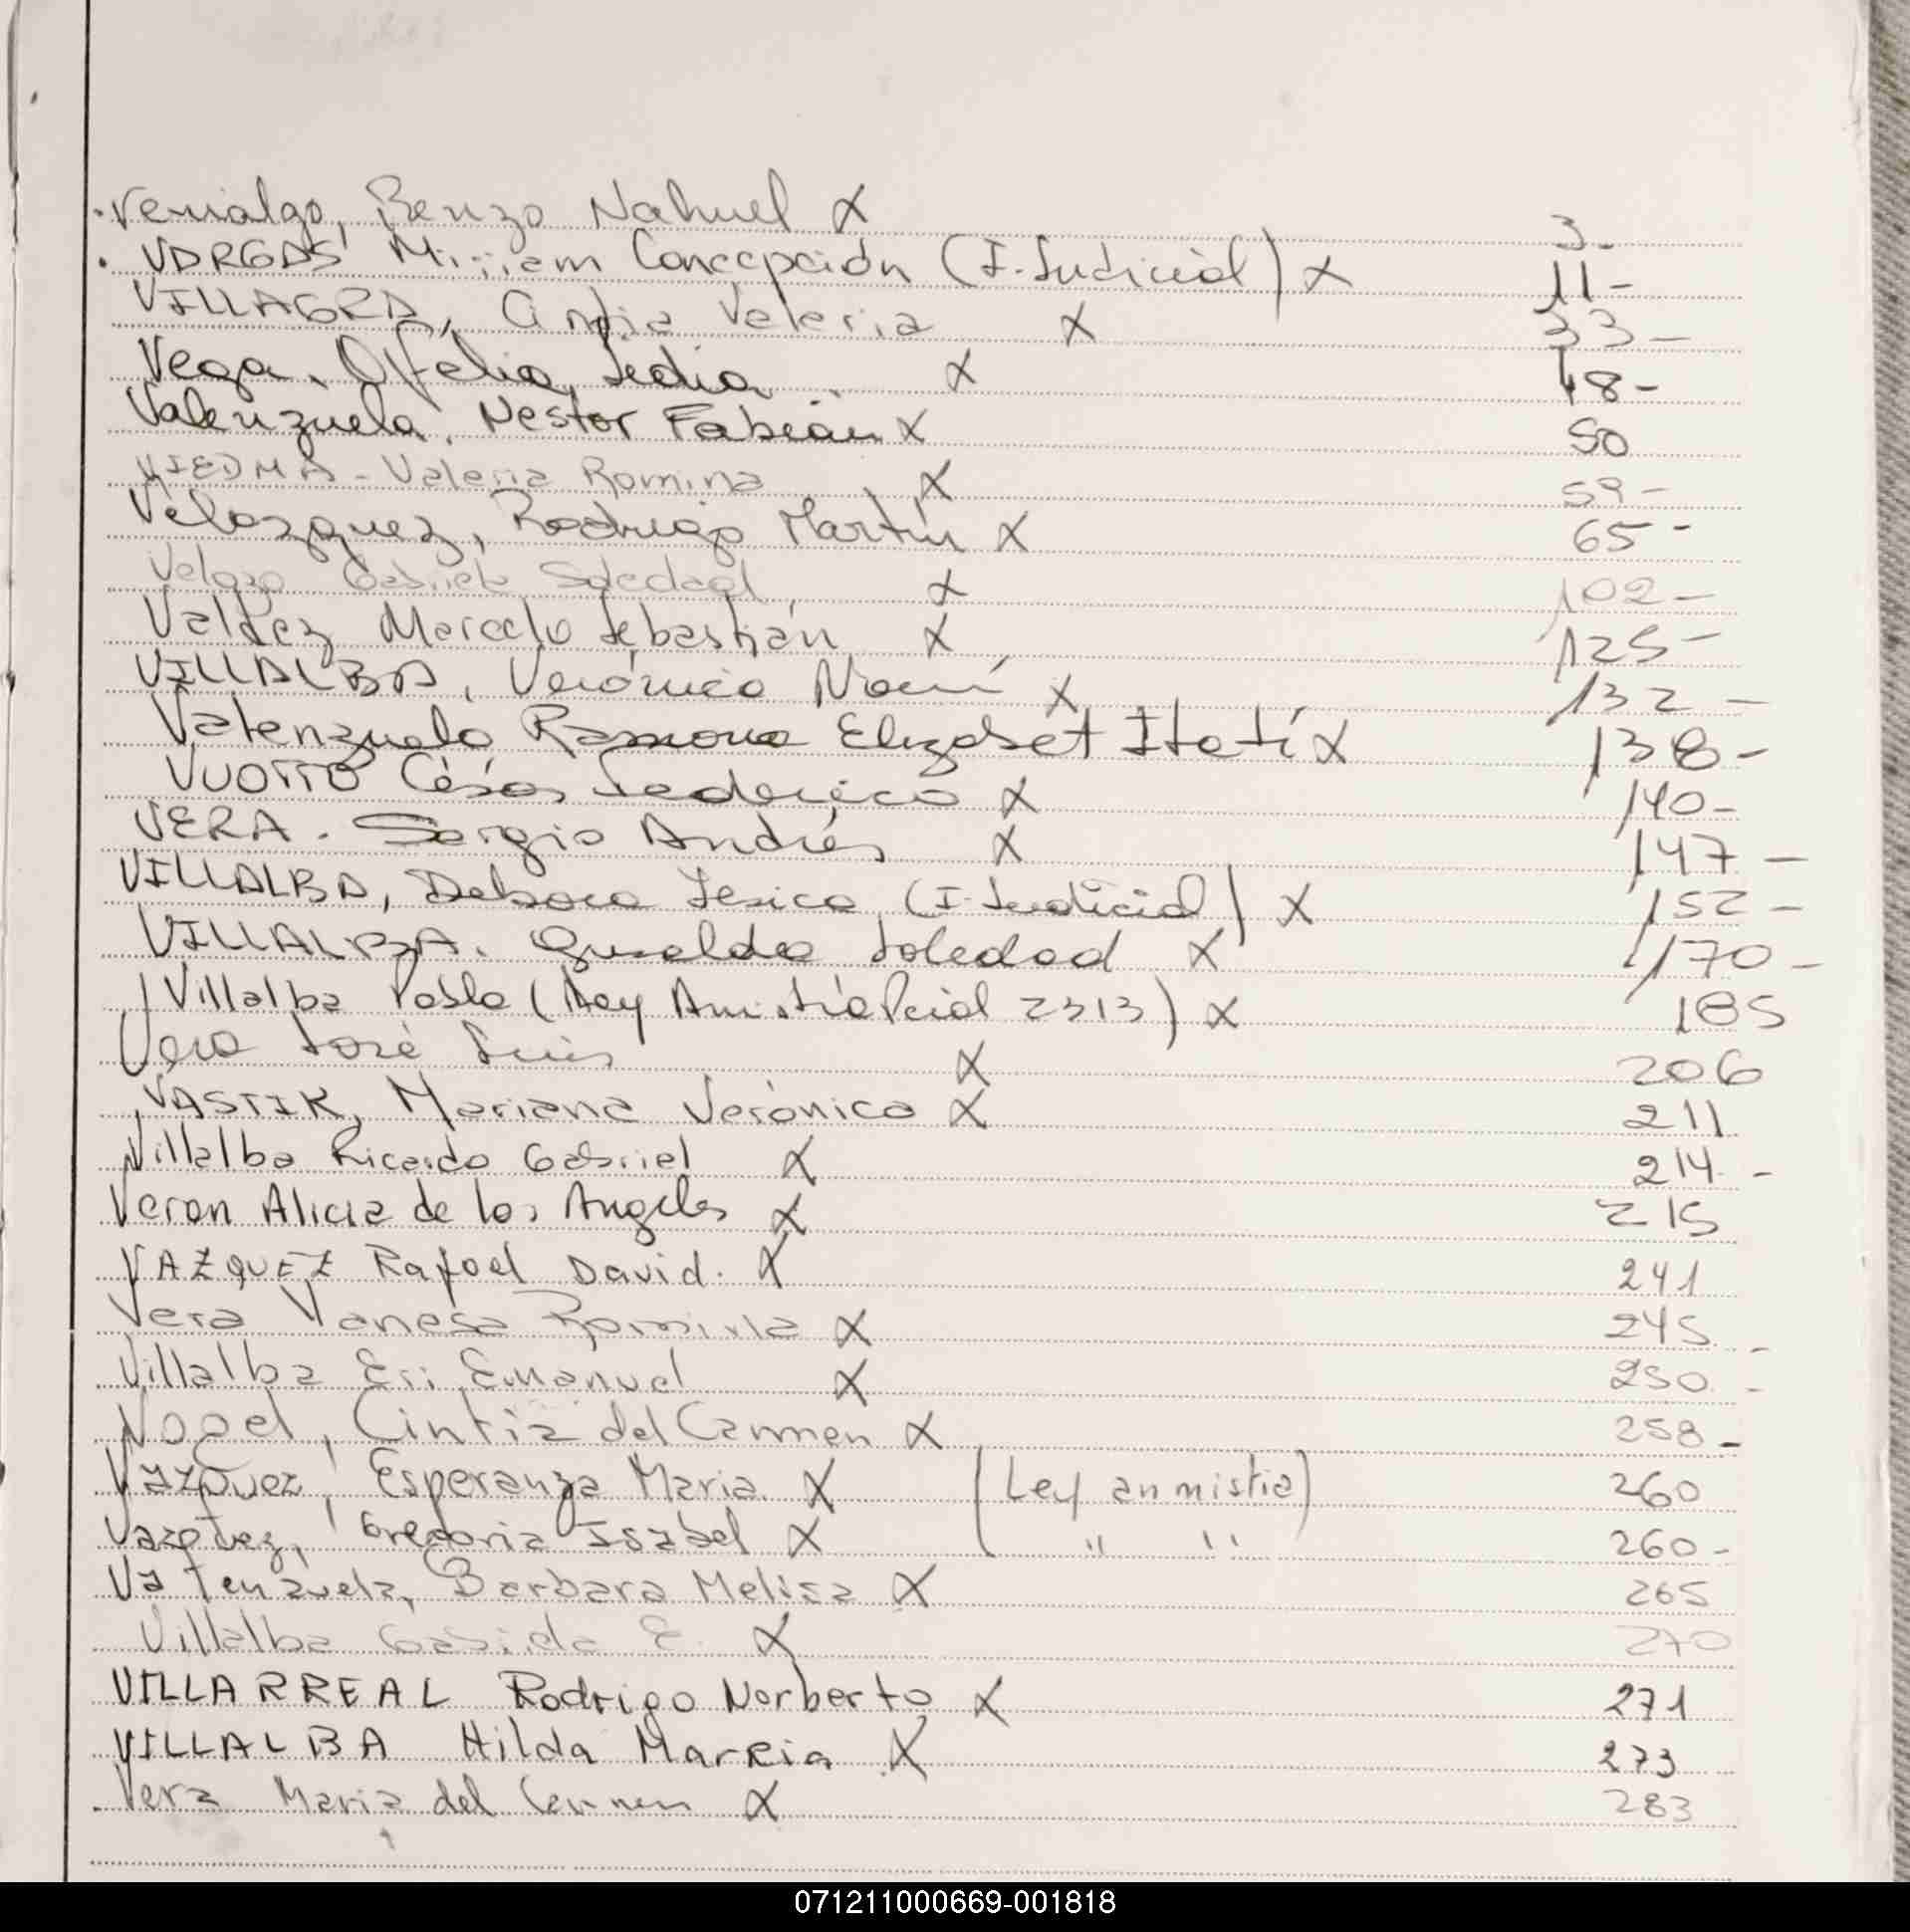 . Venialgo, Renzo Nahuel X 3-
. VARGAS Miriam Concepción (I. Judicial) X 11-
VILLAGRA, Cintia Valeria X 33-
Vega, Ofelia Lidia X 48-
Valenzuela, Nestor Fabián X 50
VIEDMA - Valeria Romina X 59-
Velozquez, Rodrigo Martín X 65-
Velozo Gabriela Soledad X 102-
Valdez Marcelo Sebastián X 125-
VILLALBA, Verónica Noemí X 132-
Valenzuela Ramona Elizabet Itatí X 138-
VUOTTO César Federico X 140-
VERA. Sergio Andrés X 147-
VILLALBA, Debora Jesica (I. Judicial) X 152-
VILLALBA. Griselda Soledad X 170-
Villalba Pablo (Ley Amistía Pcial 2313) X 185
Vera José Luis X 206
VASTIK, Mariana Verónica X 211
Villalba Ricardo Gabriel X 214-
Veron Alicia de los Angeles X 215
VAZQUEZ Rafael David. X 241
Vera Vanesa Romina X 245-
Villalba Eri Emanuel X 250-
Vogel, Cintia del Carmen X 258-
Vazquez, Esperanza Maria X (Ley anmistia) 260
Vazquez, Gregoria Isabel X ( " " 260-
Valenzuela, Barbara Melisa X 265
Villalba Gabriela E. X 270
VILLARREAL Rodrigo Norberto X 271
VILLALBA Hilda Marria X 273
Vera Maria del Carmen X 283
071211000669-001818